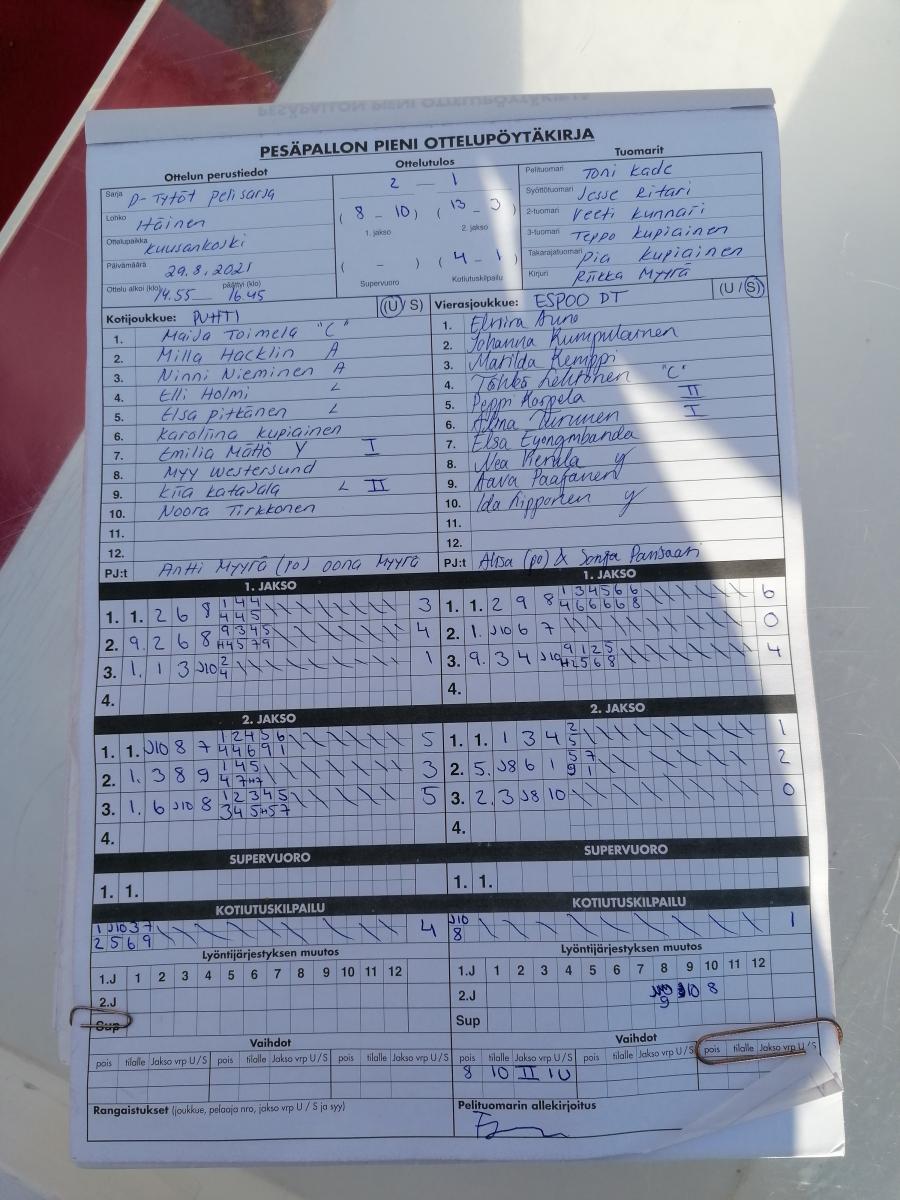 PESÄPALLON PIENI OTTELUPÖYTÄKIRJA
Ottelun perustiedot
Sarja D-Tytöt pelisarja
Lohko Itäinen
Ottelupaikka Kuusankoski
Päivämäärä 29.8.2021
Ottelu alkoi (klo) 14.55 päättyi (klo) 16.45
Ottelutulos
2 - 1
(8 - 10) (13 - 3)
1. jakso 2. jakso
( - ) (4 - 1)
Supervuoro Kotiutuskilpailu
Tuomarit
Pelituomari Toni Kade
Syöttötuomari Jesse Ritari
2-tuomari Veeti Kunnari
3-tuomari Teppo Kupiainen
Takarajatuomari Pia Kupiainen
Kirjuri Riikka Myyrä
Kotijoukkue: PUHTI (U/S)
1. Maija Toimela "C"
2. Milla Hacklin A
3. Ninni Nieminen A
4. Elli Holmi L
5. Elsa Pitkänen L
6. Karoliina Kupiainen
7. Emilia Mättö Y I
8. Myy Westersund
9. Kiia Katajala L II
10. Noora Tirkkonen
11.
12.
PJ:t Antti Myyrä (po) Oona Myyrä
Vierasjoukkue: ESPOO DT (U/S)
1. Elmira
2. Johanna Rumpulainen
3. Matilda Kemppi
4. Lehtonen "C"
5. Peppi Korpela II
6. Alina Turunen I
7. Elsa Eyongmbanda
8. Nea y
9. Aava Paajanen
10. Ida Ripponen y
11.
12.
PJ:t (po) & Sonja Pansaari
1. JAKSO
1. 1. 2 6 8 1 4 4 3
4 4 5
2. 9. 2 6 8 9 3 4 5 4
3. 1. 1 3 J10 2 1
4
4.
1. JAKSO
1. 1. 2 9 8 1 3 4 5 6 6 6
4 6 6 6 6 8
2. 1. J10 6 7 0
3. 9. 3 4 J10 9 1 2 5 4
4.
2. JAKSO
1. 1. J10 8 7 1 2 4 5 6 5
4 4 6 9 1
2. 1. 3 8 9 1 4 5 3
3. 1. 6 J10 8 1 2 3 4 5 5
4.
2. JAKSO
1. 1. 1 3 4 2 1
5
2. 5. J8 6 1 5 7 2
9 1
3. 2. 3 J8 10 0
4.
SUPERVUORO
1. 1.
SUPERVUORO
1. 1.
KOTIUTUSKILPAILU
1 J10 3 7 4
2 5 6 9
KOTIUTUSKILPAILU
J10 1
8
Lyöntijärjestyksen muutos
1.J 1 2 3 4 5 6 7 8 9 10 11 12
2.J
Sup
Lyöntijärjestyksen muutos
1.J 1 2 3 4 5 6 7 8 9 10 11 12
2.J J10 8
9
Sup
Vaihdot
pois tilalle Jakso vrp U/S pois tilalle Jakso vrp U/S pois tilalle Jakso vrp U/S
Vaihdot
pois tilalle Jakso vrp U/S pois tilalle Jakso vrp U/S pois tilalle Jakso vrp U/S
8 10 II 1U
Rangaistukset (joukkue, pelaaja nro, jakso vrp U / S ja syy)
Pelituomarin allekirjoitus